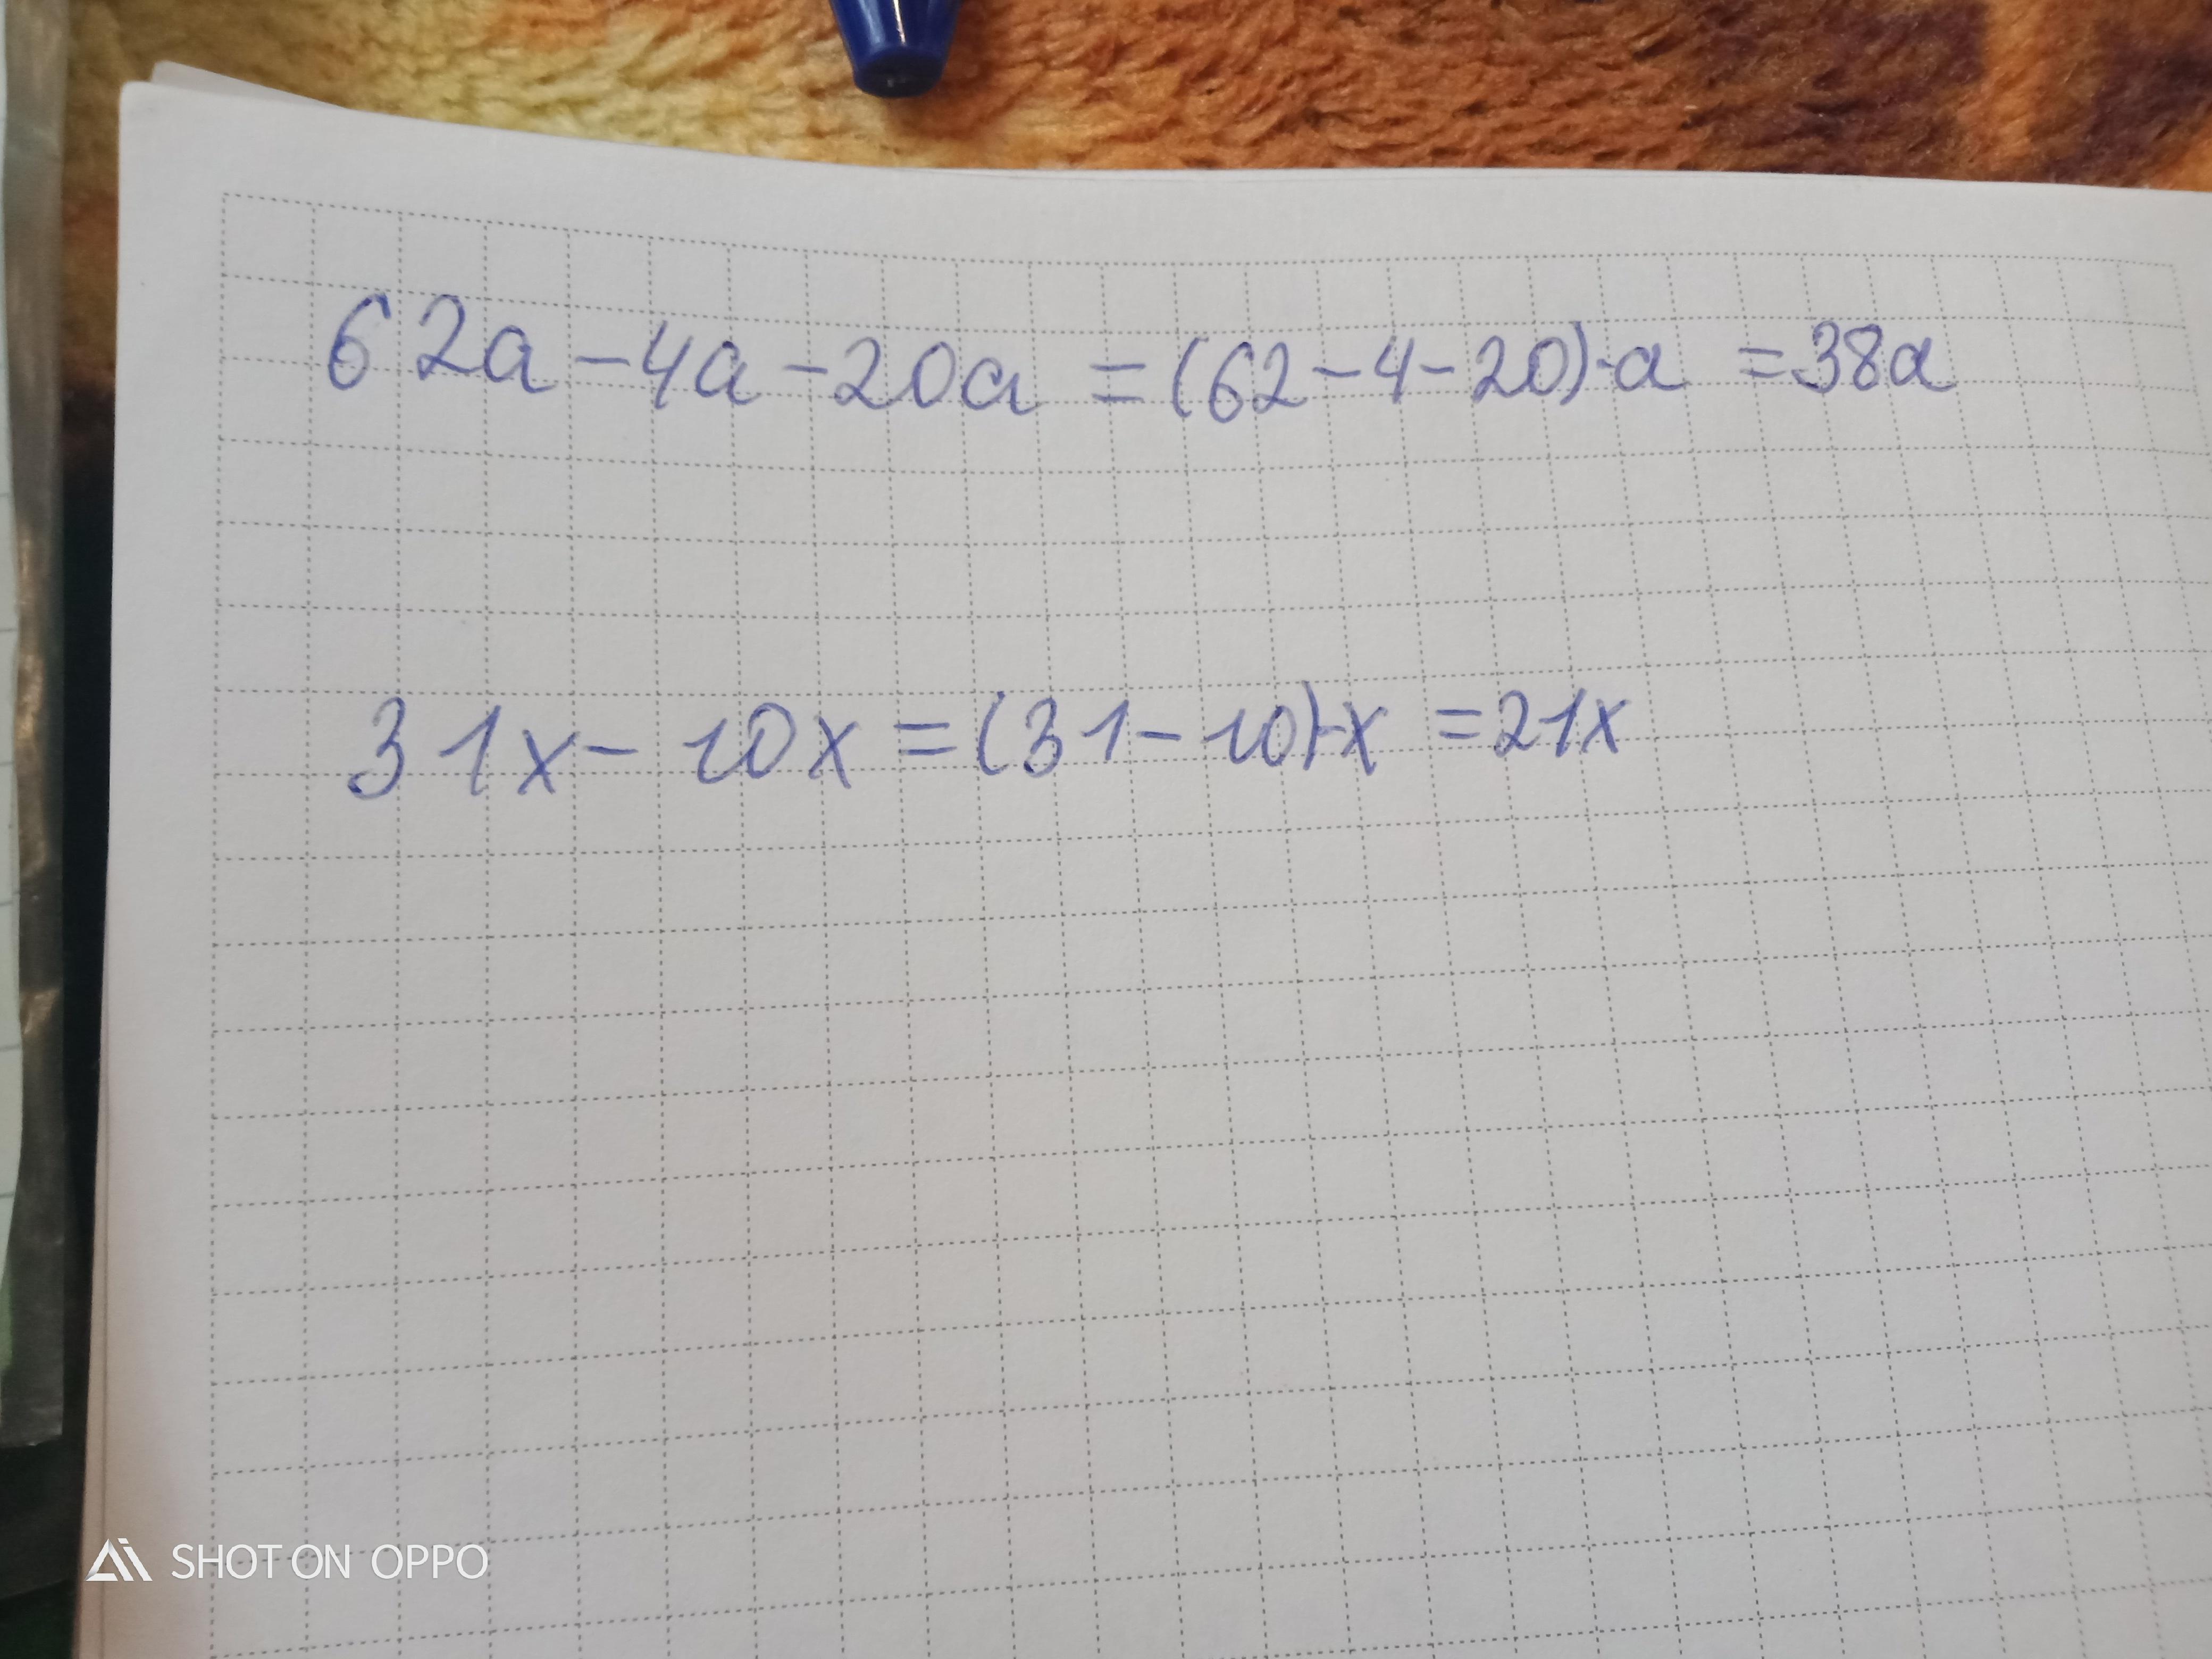 62a-4a-20a=(62-4-20)·a=38a
31x-10x=(31-10)·x=21x
SHOT ON OPPO